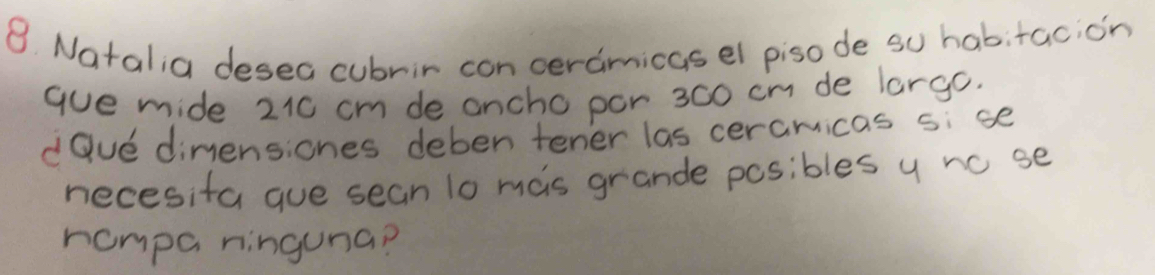 8. Natalia desea cubrir con cerámicas el piso de su habitación
que mide 210 cm de ancho por 300 cm de largo.
¿Qué dimensiones deben tener las cerámicas si se
necesita que sean lo más grande posibles y no se
rompa ninguna?